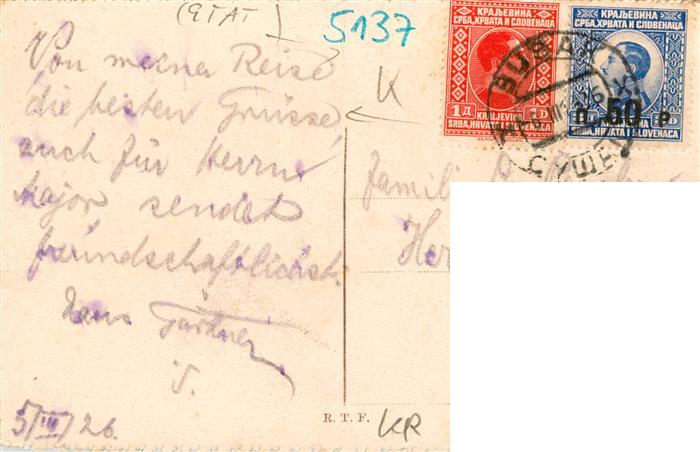 (STAT)
5137
Von meiner Reise
die besten Grüsse,
auch für Herrn
Major, sendet
freundschaftlichst
Hans Gärtner
5/III/26.
K
Famili
Her
R. T. F.
KR
КРАЉЕВИНА
СРБА,ХРВАТА И СЛОВЕНАЦА
1 Д 1 D
KRALJEVINA
SRBA,HRVATA I SLOVENACA
КРАЉЕВИНА
СРБА,ХРВАТА И СЛОВЕНАЦА
П. 50 P
KRALJEVINA
SRBA,HRVATA I SLOVENACA
SUŠAK